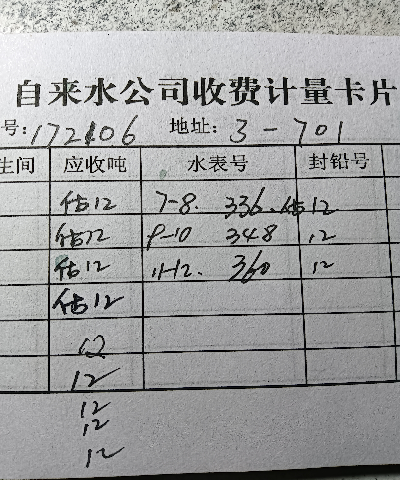 自来水公司收费计量卡片
号:172106 地址: 3-701
生间 应收吨 水表号 封铅号
估12 7-8. 336. 估12
估12 9-10 348 12
估12 11-12. 360 12
估12
12
12
12
12
12